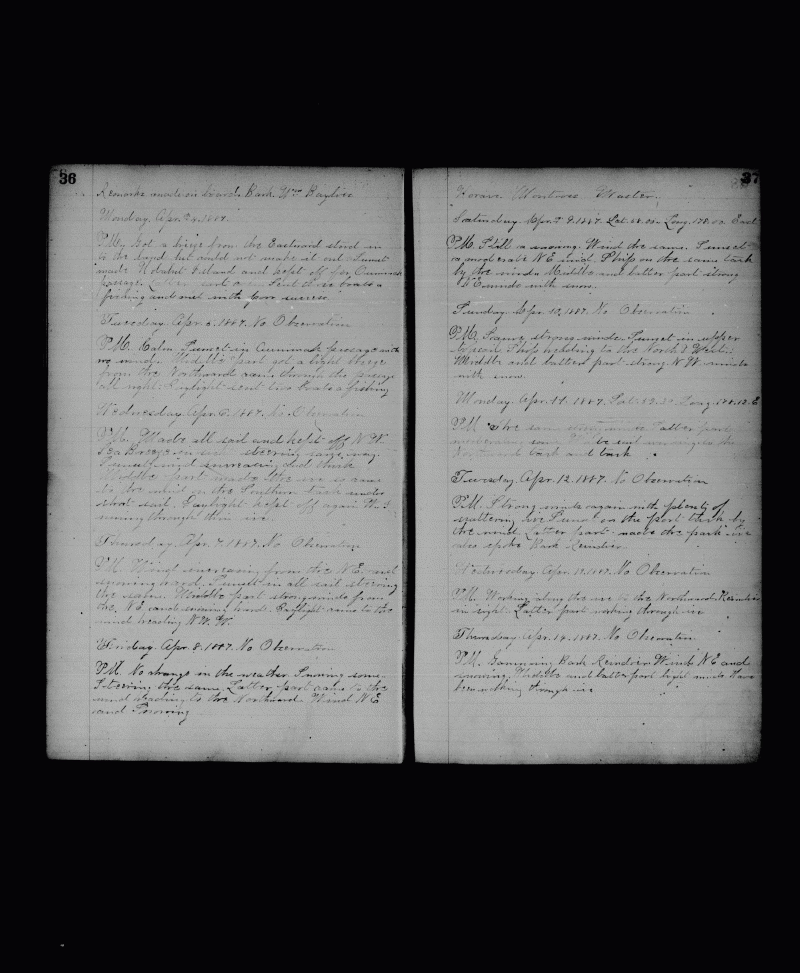 36
Remarks made on board Bark Wm Baylies
Monday. Apr. 1887.
P.M. Got a breeze from the Eastward stood in
to the land but could not make it out Sunset
made Island and kept off for
passage. Latter part Sent three boats a
fishing and met with poor success.
Tuesday. Apr. 5. 1887. No Observation
P.M. Calm. Sunset in passage with
no wind. Middle part got a light breeze
from the Northward came through the passage
all right. Daylight sent two boats a fishing
Wednesday. Apr. 6. 1887. No Observation
P.M. Made all sail and kept off N.W.
steering same way.
Sunset wind increasing and thick
Middle part made the ice so came
to the wind on the Southern tack under
short sail. Daylight kept off again
running through thin ice.
Thursday. Apr. 7. 1887. No Observation
P.M. Wind increasing from the N.E. and
snowing hard. Sunset in all sail steering
the same. Middle part strong winds from
the N.E. and snowing hard. Daylight came to the
wind heading N.W.
Friday. Apr. 8. 1887. No Observation
P.M. No change in the weather Snowing some.
Steering the same. Latter part came to the
wind heading to the Northward. Wind N.E.
and Snowing
37
Horace Montross Master.
Saturday. Apr. 9. 1887. Lat. Long. East
P.M. Still a snowing. Wind the same. Sunset
a moderate N.E. wind. Ship on the same tack
by the wind. Middle and latter part strong
N.E. winds with snow.
Sunday. Apr. 10, 1887. No Observation
P.M. Same strong winds. Sunset in upper
topsail Ship heading to the North &
Middle and latter part strong N.W. winds
with snow.
Monday. Apr. 11. 1887. Lat. Long. E
P.M. The same strong winds Latter part
moderating some
Northward tack and tack.
Tuesday. Apr. 12. 1887. No Observation
P.M. Strong winds again with plenty of
scattering ice Sunset on the port tack by
the wind. Latter part made the pack ice
also spoke Bark Reindeer.
Wednesday. Apr. 13. 1887. No Observation
P.M. Working along the ice to the Northward. Reindeer
in sight. Latter part working through ice
Thursday. Apr. 14. 1887. No Observation
P.M. Gamming Bark Reindeer. Wind N.E. and
snowing. Middle and latter part light winds Have
been working through ice